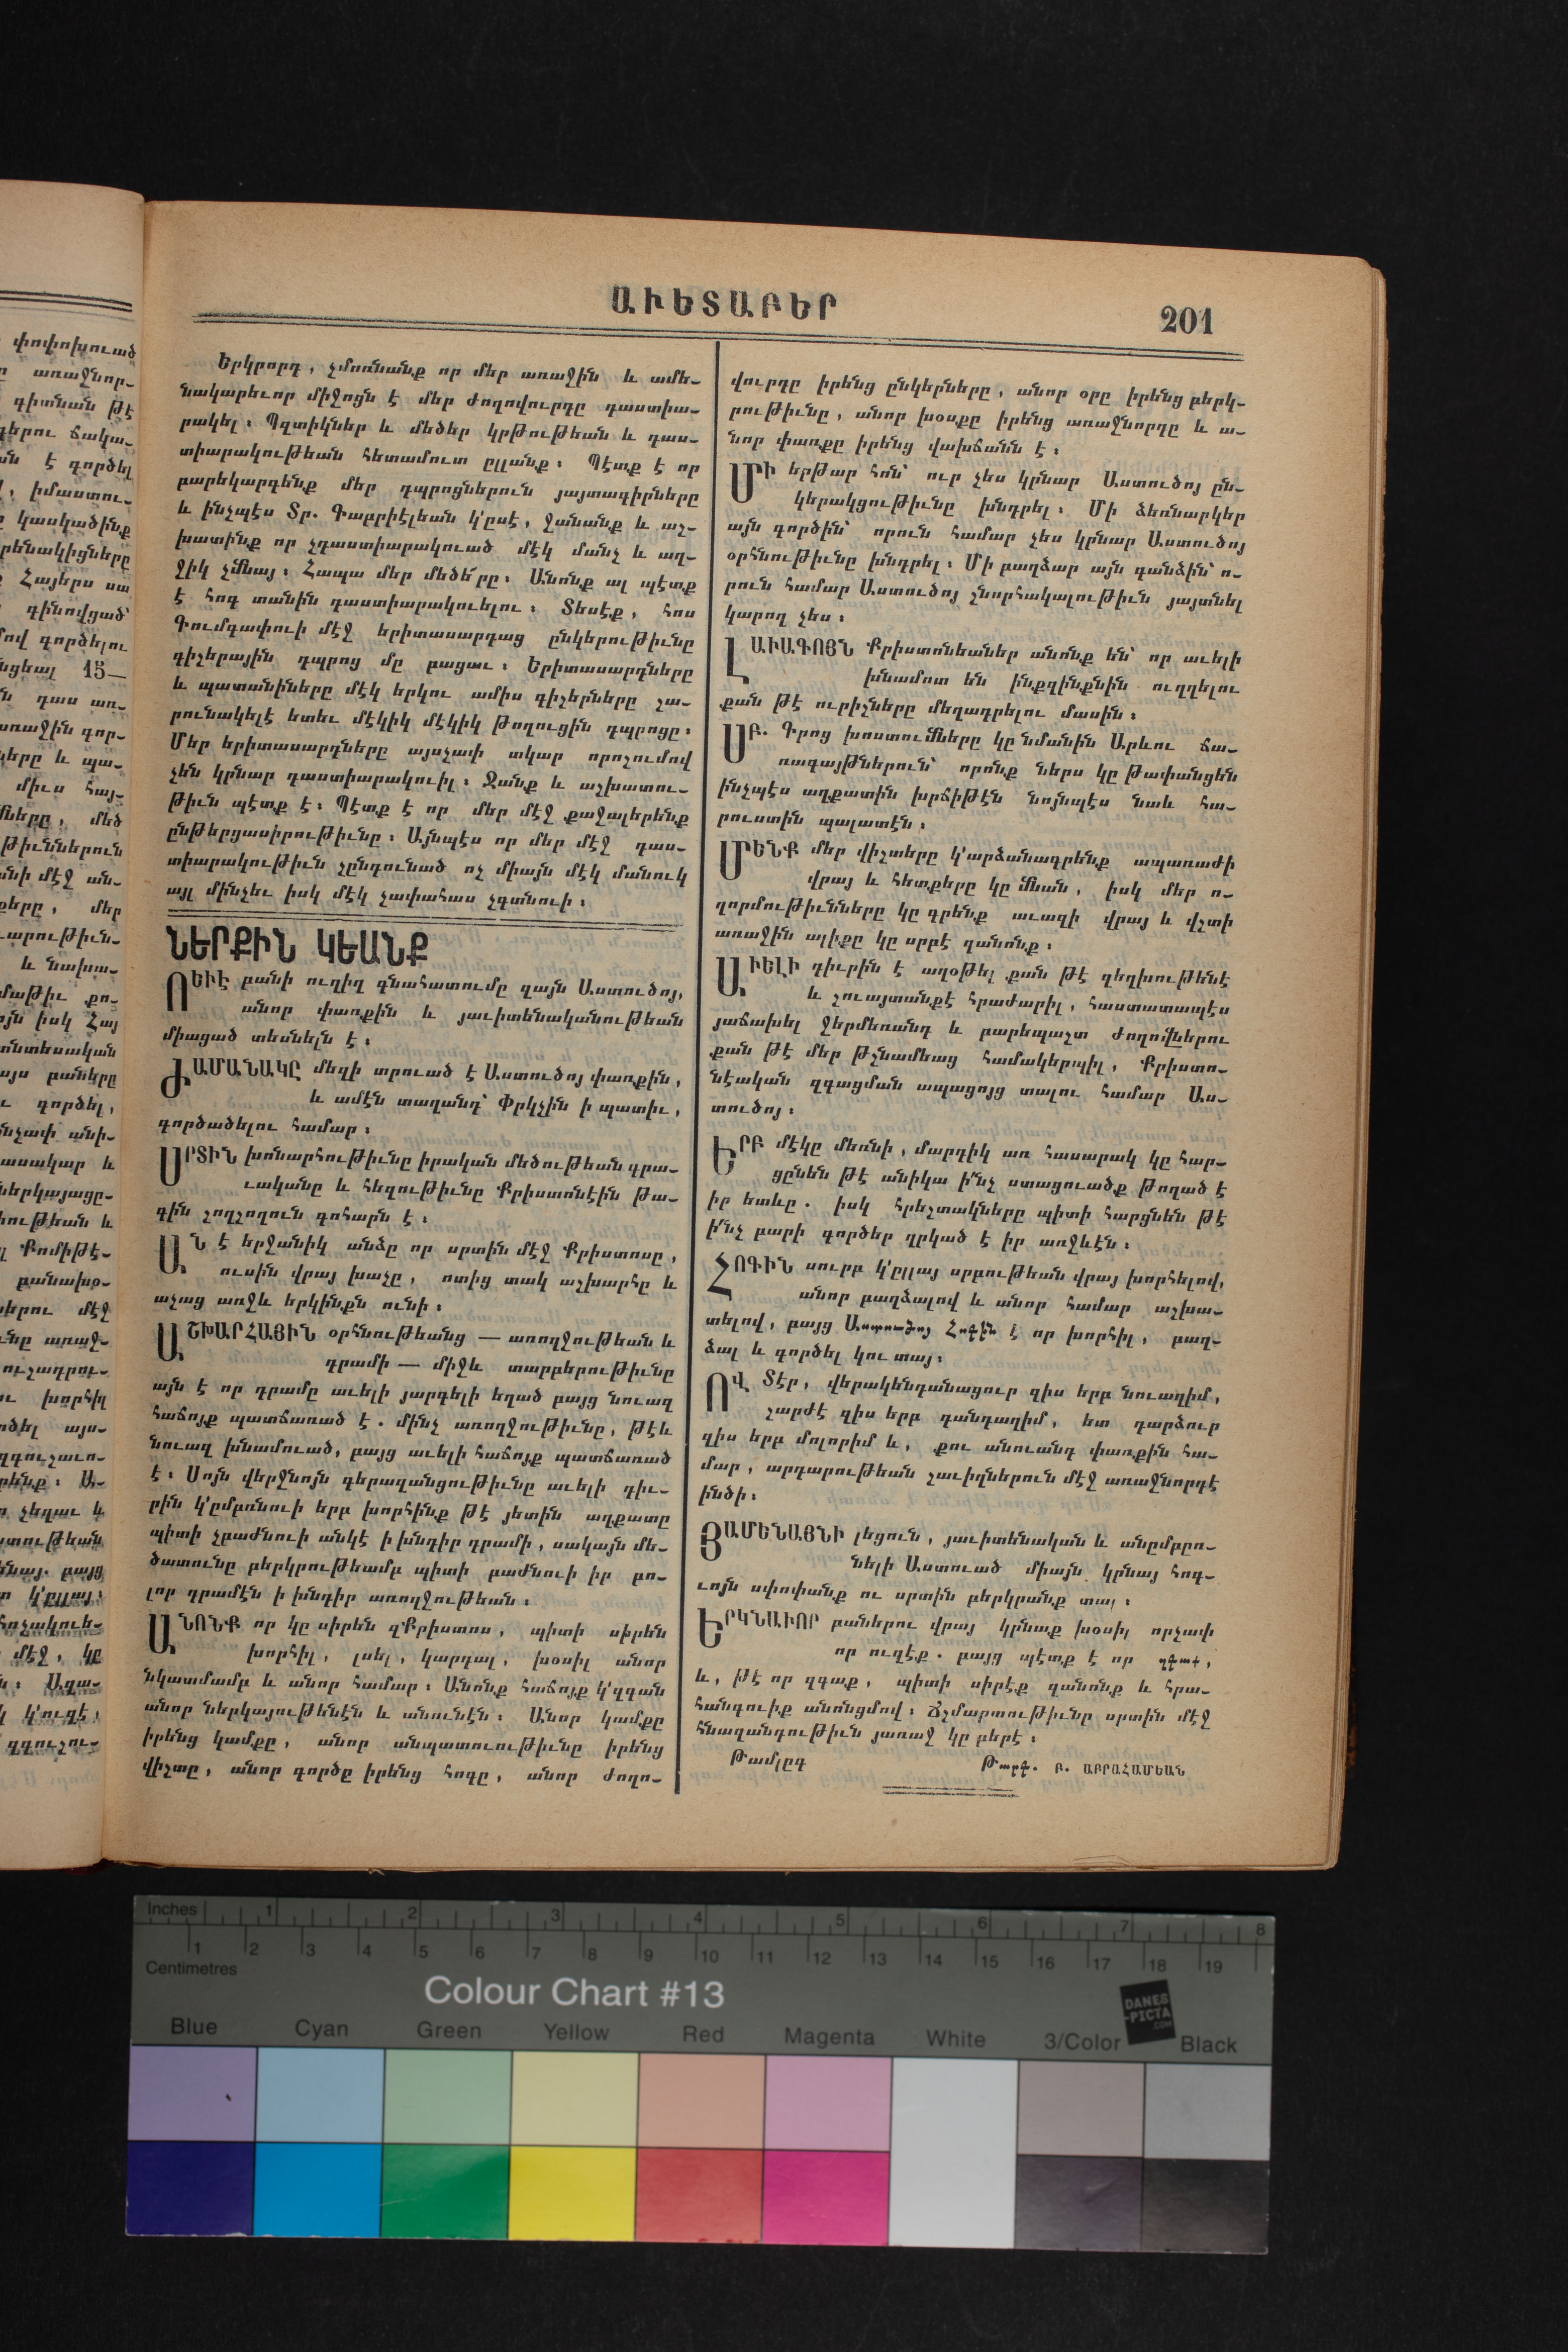 ԱՒԵՏԱԲԵՐ
201
Երկրորդ, չմոռնանք որ մեր առաջին և ամե-
նակարեւոր միջոցն է մեր ժողովուրդը դաստիա-
րակել։ Պզտիկներ և մեծեր կրթութեան և դաս-
տիարակութեան հետամուտ ըլլանք։ Պէտք է որ
բարեկարգենք մեր դպրոցներուն յայտագիրները
և ինչպէս Տր. Գաբրիէլեան կ'ըսէ, ջանանք և աշ-
խատինք որ չդաստիարակուած մէկ մանչ և աղ-
ջիկ չմնայ։ Հապա մեր մեծե՜րը։ Անոնք ալ պէտք
է հոգ տանին դաստիարակուելու։ Տեսէք, հոս
Գումգափուի մէջ երիտասարդաց ընկերութիւնը
գիշերային դպրոց մը բացաւ։ Երիտասարդները
և պատանիները մէկ երկու ամիս գիշերները շա-
րունակելէ ետեւ մէկիկ մէկիկ թողուցին դպրոցը։
Մեր երիտասարդները այսչափ տկար որոշումով
չեն կրնար դաստիարակուիլ։ Ջանք և աշխատու-
թիւն պէտք է։ Պէտք է որ մեր մէջ քաջալերենք
ընթերցասիրութիւնը։ Այնպէս որ մեր մէջ դաս-
տիարակութիւն չընդունած ոչ միայն մէկ մանուկ
այլ մինչեւ իսկ մէկ չափահաս չգտնուի։
ՆԵՐՔԻՆ ԿԵԱՆՔ
ՈԵՒԷ բանի ուղիղ գնահատումը զայն Աստուծոյ,
անոր փառքին և յաւիտենականութեան
միացած տեսնելն է։
ԺԱՄԱՆԱԿԸ մեզի տրուած է Աստուծոյ փառքին,
և ամէն տաղանդ՝ Փրկչին ի պատիւ,
գործածելու համար։
ՍՐՏԻՆ խոնարհութիւնը իրական մեծութեան գրա-
ւականը և հեզութիւնը Քրիստոնէին թա-
գին շողշողուն գոհարն է։
ԱՆ է երջանիկ անձը որ սրտին մէջ Քրիստոսը,
ուսին վրայ խաչը, ոտից տակ աշխարհը և
աչաց առջև երկինքն ունի։
ԱՇԽԱՐՀԱՅԻՆ օրհնութեանց — առողջութեան և
դրամի — միջև տարբերութիւնը
այն է որ դրամը աւելի յարգելի եղած բայց նուազ
հաճոյք պատճառած է. մինչ առողջութիւնը, թէև
նուազ խնամուած, բայց աւելի հաճոյք պատճառած
է։ Սոյն վերջնոյն գերազանցութիւնը աւելի դիւ-
րին կ'ըմբռնուի երբ խորհինք թէ յետին աղքատը
պիտի չբաժնուի անկէ ի խնդիր դրամի, սակայն մե-
ծատունը բերկրութեամբ պիտի բաժնուի իր բո-
լոր դրամէն ի խնդիր առողջութեան։
ԱՆՈՆՔ որ կը սիրեն զՔրիստոս, պիտի սիրեն
խորհիլ, լսել, կարդալ, խօսիլ անոր
նկատմամբ և անոր համար։ Անոնք հաճոյք կ'զգան
անոր ներկայութենէն և անունէն։ Անոր կամքը
իրենց կամքը, անոր անպատուութիւնը իրենց
վիշտը, անոր գործը իրենց հոգը, անոր ժողո-
վուրդը իրենց ընկերները, անոր օրը իրենց բերկ-
րութիւնը, անոր խօսքը իրենց առաջնորդը և ա-
նոր փառքը իրենց վախճանն է։
ՄԻ երթար հոն՝ ուր չես կրնար Աստուծոյ ըն-
կերակցութիւնը խնդրել։ Մի ձեռնարկեր
այն գործին՝ որուն համար չես կրնար Աստուծոյ
օրհնութիւնը խնդրել։ Մի բաղձար այն գանձին՝ ո-
րուն համար Աստուծոյ շնորհակալութիւն յայտնել
կարող չես։
ԼԱՒԱԳՈՅՆ Քրիստոնեաներ անոնք են՝ որ աւելի
խնամոտ են ինքզինքնին ուղղելու
քան թէ ուրիշները մեղադրելու մասին։
ՍԲ. Գրոց խոստումները կը նմանին Արևու ճա-
ռագայթներուն՝ որոնք ներս կը թափանցեն
ինչպէս աղքատին խրճիթէն նոյնպէս նաև հա-
րուստին պալատէն։
ՄԵՆՔ մեր վիշտերը կ'արձանագրենք ապառաժի
վրայ և հետքերը կը մնան, իսկ մեր ո-
ղորմութիւնները կը գրենք աւազի վրայ և վշտի
առաջին ալիքը կը սրբէ զանոնք։
ԱՒԵԼԻ դիւրին է աղօթել քան թէ զեղխութենէ
և շուայտանքէ հրաժարիլ, հաստատապէս
յաճախել ջերմեռանդ և բարեպաշտ ժողովներու
քան թէ մեր թշնամեաց համակերպիլ, Քրիստո-
նէական զգացման ապացոյց տալու համար Աս-
տուծոյ։
ԵՐԲ մէկը մեռնի, մարդիկ առ հասարակ կը հար-
ցընեն թէ անիկա ի՛նչ ստացուածք թողած է
իր ետևը. իսկ հրեշտակները պիտի հարցնեն թէ
ի՛նչ բարի գործեր ղրկած է իր առջևէն։
ՀՈԳԻՆ սուրբ կ'ըլլայ սրբութեան վրայ խորհելով,
անոր բաղձալով և անոր համար աշխա-
տելով, բայց Աստուծոյ Հոգին է որ խորհիլ, բաղ-
ձալ և գործել կու տայ։
ՈՎ Տէր, վերակենդանացուր զիս երբ նուաղիմ,
շարժէ զիս երբ դանդաղիմ, ետ դարձուր
զիս երբ մոլորիմ և, քու անուանդ փառքին հա-
մար, արդարութեան շաւիղներուն մէջ առաջնորդէ
ինծի։
ՅԱՄԵՆԱՅՆԻ լեցուն, յաւիտենական և անըմբռ-
նելի Աստուած միայն կրնայ հոգ-
ւոյն սփոփանք ու սրտին բերկրանք տալ։
ԵՐԿՆԱՒՈՐ բաներու վրայ կրնաք խօսիլ որչափ
որ ուզէք. բայց պէտք է որ զգաք,
և, թէ որ զգաք, պիտի սիրէք զանոնք և հրա-
հանգուիք անոնցմով։ Ճշմարտութիւնը սրտին մէջ
հնազանդութիւն յառաջ կը բերէ։
Թամլըգ
Թարգ. Բ. ԱԲՐԱՀԱՄԵԱՆ
Inches 1 2 3 4 5 6 7 8
1 2 3 4 5 6 7 8 9 10 11 12 13 14 15 16 17 18 19
Centimetres
Colour Chart #13
DANES
-PICTA
.COM
Blue Cyan Green Yellow Red Magenta White 3/Color Black